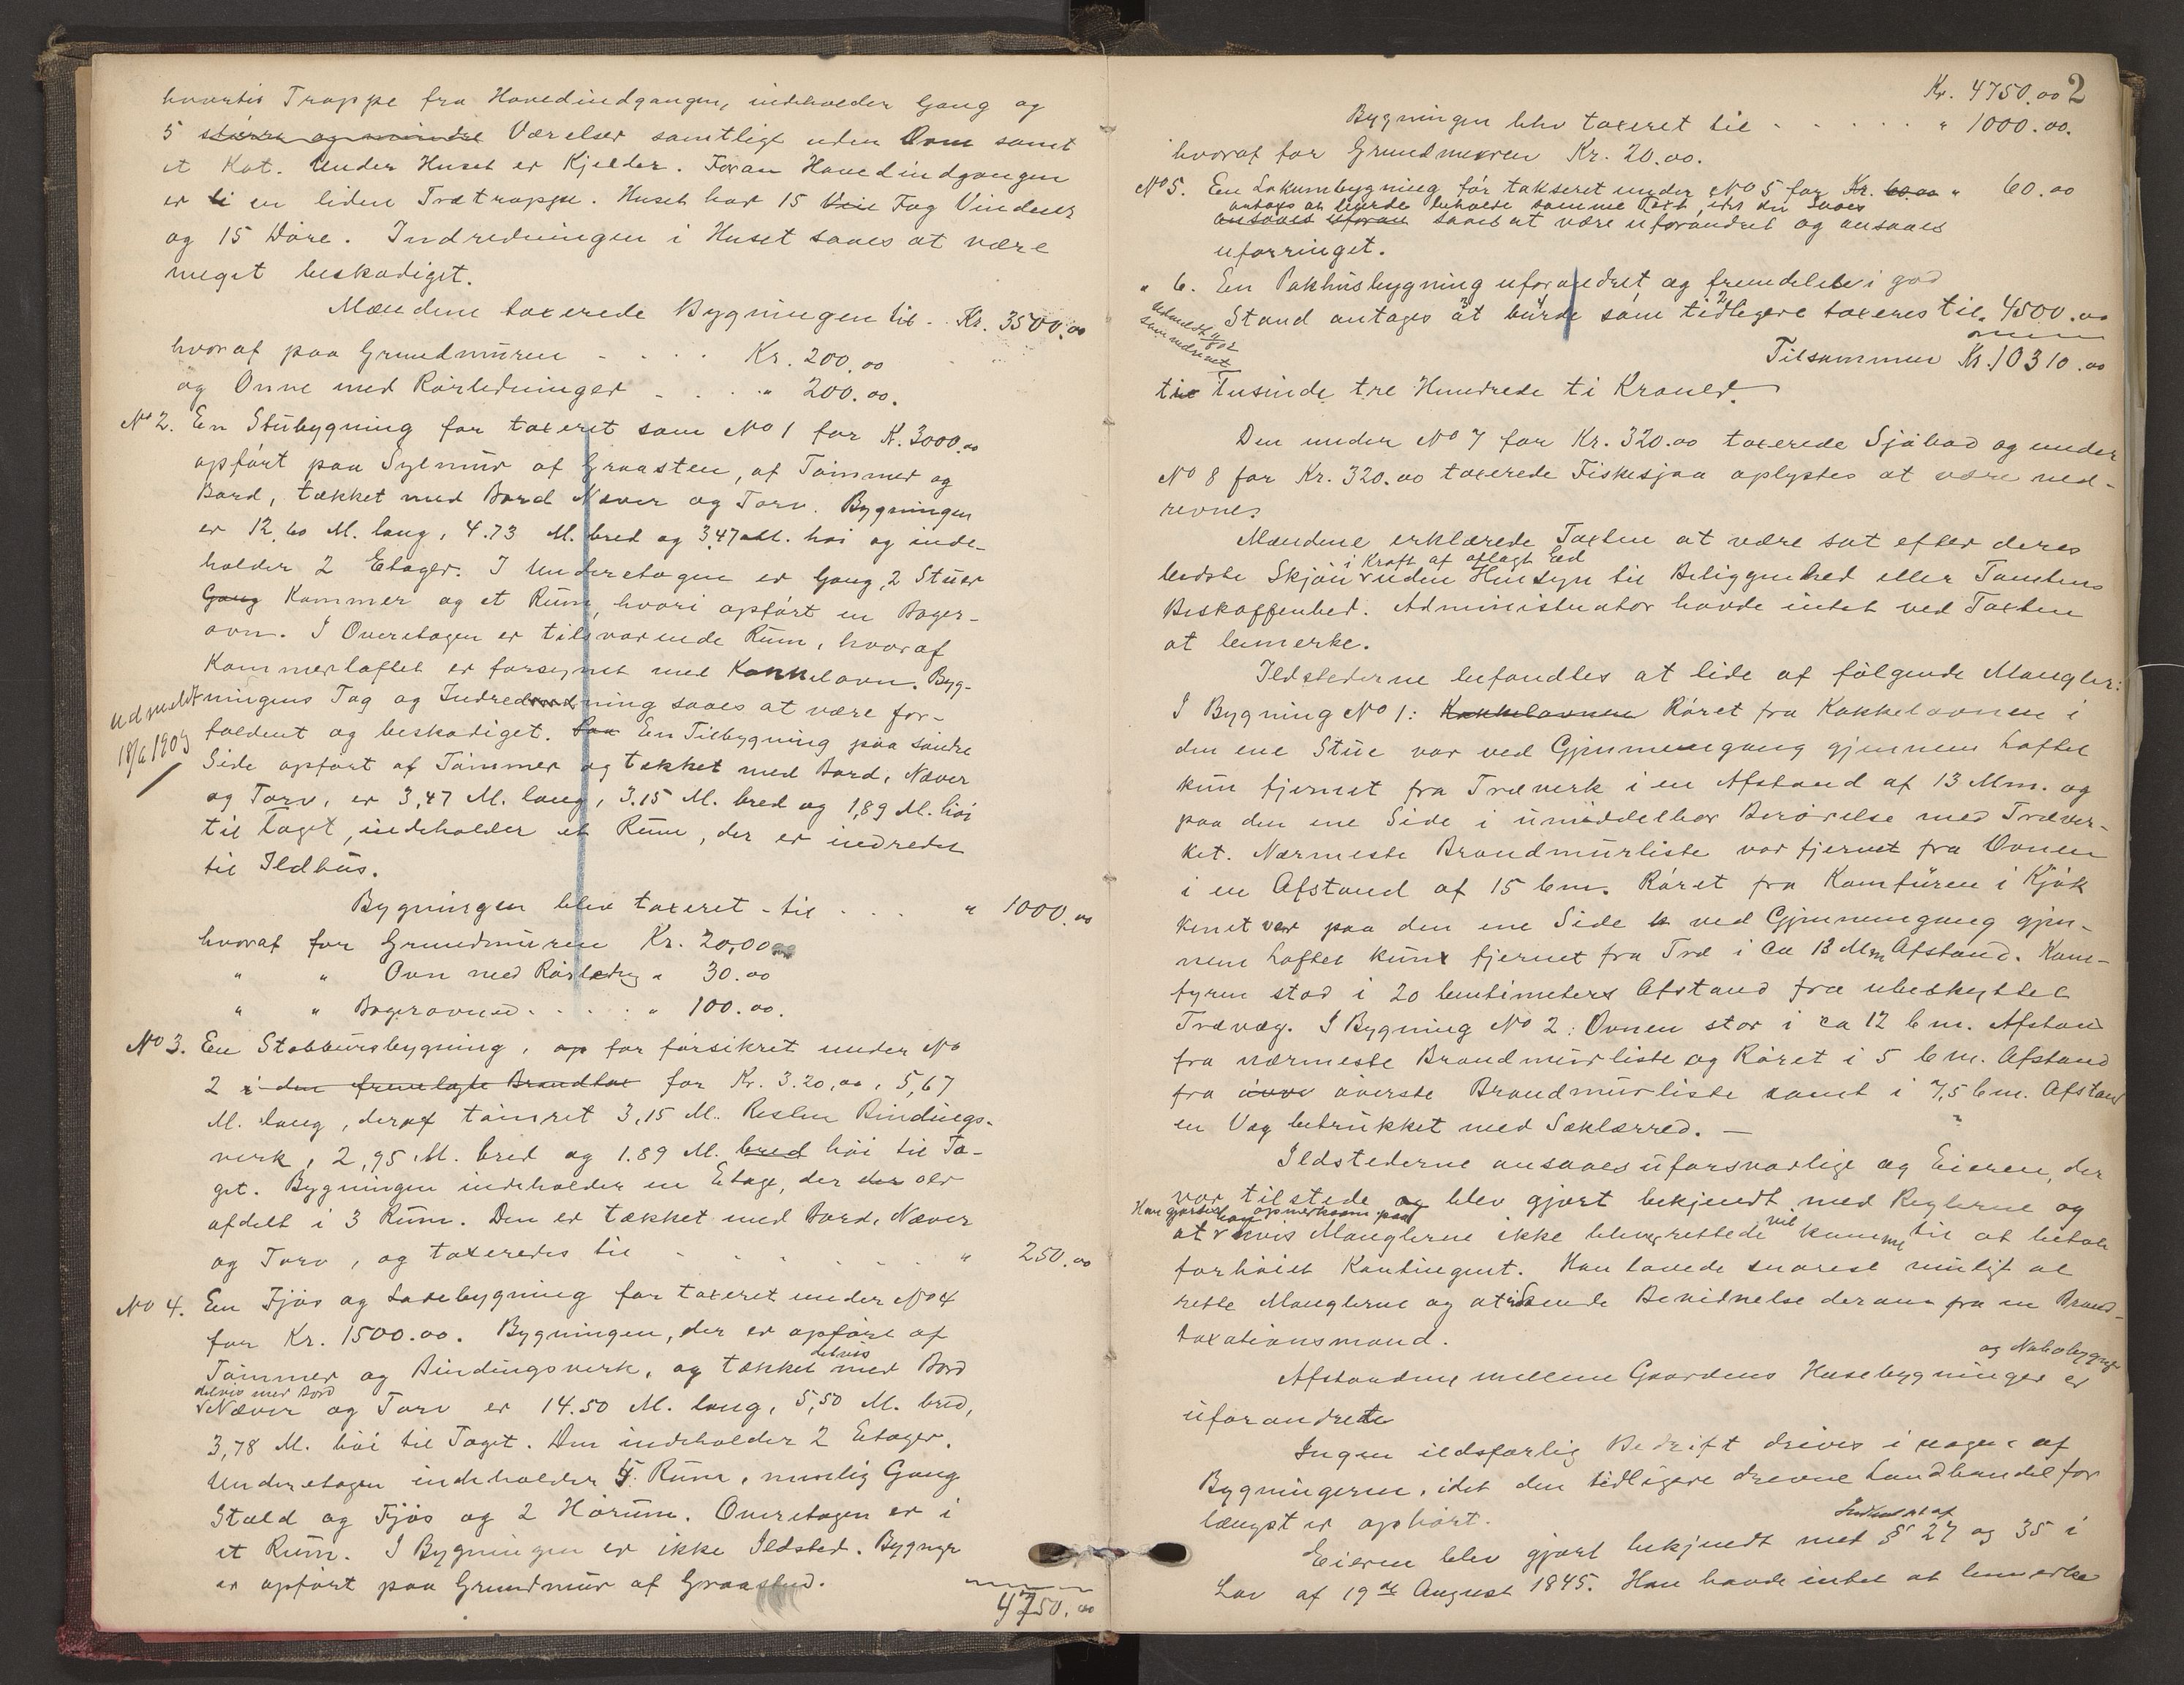 hvortil Trappe fra Hovedindgangen, indeholder Gang og
5 större og mindre Værelser samtligt uden Ovn samt
et Kot. Under Huset er Kjelder. Foran Hovedindgangen
er en liden Trætrappe. Huset har 15 Fag Vinduer
og 15 Döre. Indredningen i Huset saaes at være
meget beskadiget.
Mændene taxerede Bygningen til . Kr. 3500.00
hvoraf paa Grundmuren - . . . Kr. 200.00
og Ovne med Rörledninger - . . . " 200.00.
No 2. En Stübygning för taxeret som No 1 for K. 3000.00
opfört paa Sylmür af Graasten, af Tömmer og
Bord, tækket med Bord Næver og Torv. Bygningen
er 12.60 M. lang, 4.73 M. bred og 3,47 M. höi og inde-
holder 2 Etager. I Underetagen er Gang, 2 Stüer
Gang Kammer og et Rüm, hvori opfört en Bager-
ovn. I Overetagen er tilsvarende Rüm, hvoraf
Kammerloftet er forsynet med Kakkelovn. Byg-
ningens Tag og Indredning saaes at være for-
faldent og beskadiget. En Tilbygning paa söndre
Udmeldt
18/6 1909
Side opfört af Tömmer og tækket med Bord, Næver
og Torv, er 3,47 M. lang, 3.15 M. bred og 1,89 M. höi
til Taget, indeholder et Rüm, der er indredet
til Ildhüs.
Bygningen blev taxeret til . . . " 1000.00
hvoraf for Grundmüren Kr. 20,00
" " Ovn med Rörledng " 30.00
" " Bagerovnen . . . . " 100.00.
No 3. En Stabbürsbygning, för forsikret under No
2 i den fremlagte Brandtax for Kr. 3.20,00, 5,67
M. lang, deraf tömret 3,15 M. Resten Bindings-
verk, 2,95 M. bred og 1.89 M. bred höi til Ta-
get. Bygningen indeholder en Etage, der der er
afdelt i 3 Rüm. Den er tækket med Bord, Næver
og Torv, og taxeredes til - . . . . . " 250.00
No 4. En Fjös og Ladebygning för taxeret under No 4
for Kr. 1500.00. Bygningen, der er opfört af
Tömmer og Bindingsverk, og tækket delvis med Bord
delvis med Bord
Næver og Torv er 14.50 M. lang, 5,50 M. bred,
3,78 M. höi til Taget. Den indeholder 2 Etager.
Underetagen indeholder 5 Rüm, nemlig Gang
Stald og Fjös og 2 Hörüm. Overetagen er i
et Rüm. I Bygningen er ikke Ildsted. Bygngn
er opfört paa Grundmür af Graasten.
4750.00
Kr. 4750.00 2
Bygningen blev taxeret til - . . . . . " 1000.00.
hvoraf for Grundmuren Kr. 20.00.
No 5. En Lokumbygning för takseret under No 5 for Kr. 60.00 " 60.00
antages at burde beholde samme Taxt, idet den saaes
ansaaes samt at være uforandret og ansaaes
uforringet.
" 6. En Pakhüsbygning uforandret og fremdeles i god
Stand antages at bürde som tidligere taxeres til " 4500.00
Tilsammen Kr. 10310.00
ti Tusinde tre Hundrede ti Kroner.
Den under No 7 for Kr. 320.00 taxerede Sjöbod og under
No 8 for Kr. 320.00 taxerede Fiskesjaa oplystes at være ned-
revne.
Mændene erklærede Taxten at være sat efter deres
i Kraft af aflagt Ed
bedste Skjön uden Hensyn til Beliggenhed eller Tomtens
Beskaffenhed. Administrator havde intet ved Taxten
at bemerke.
Ildstederne befandtes at lide af fölgende Mangler:
I Bygning No 1: Kakkelovnen Röret fra Kakkelovnen i
den ene Stüe var ved Gjennemgang gjennem Loftet
kün fjernet fra Træverk i en Afstand af 13 Mm. og
paa den ene Side i ümiddelbar Berörelse med Træver-
ket. Nærmeste Brandmürliste var fjernet fra Ovnen
i en Afstand af 15 Cm. Röret fra Komfüren i Kjök
kenet var paa den ene Side ved Gjennemgang gjen-
nem Loftet kün fjernet fra Træ i ca 13 Mm Afstand. Kom-
fyren stod i 20 Centimeters Afstand fra ubeskyttet
Trævæg. I Bygning No 2: Ovnen stor i ca 12 Cm. Afstand
fra nærmeste Brandmürliste og Röret i 5 Cm. Afstand
fra överste Brandmürliste samt i 7,5 Cm. Afstand
en Væg betrükket med Sæklærred. —
Ildstederne ansaaes üforsvarlige og Eieren, der
var tilstede og blev gjort bekjendt med Reglerne og
Han gjordes opmerksom paa
at hvis Manglerne ikke blev rettede vil komme til at betale
forhöiet Kontingent. Han lovede snarest müligt at
rette Manglerne og at sende Bevidnelse derom fra en Brand-
taxationsmand.
og Nabobygngr
Afstandene mellem Gaardens Husebygninger er
üforandrede
Ingen ildsfarlig Bedrift drives i nogen af
Bygningerne, idet den tidligere drevne Landhandel for
længst er ophört.
Indholdet af
Eieren blev gjort bekjendt med § 27 og 35 i
Lov af 19de August 1845. Han havde intet at bemerke